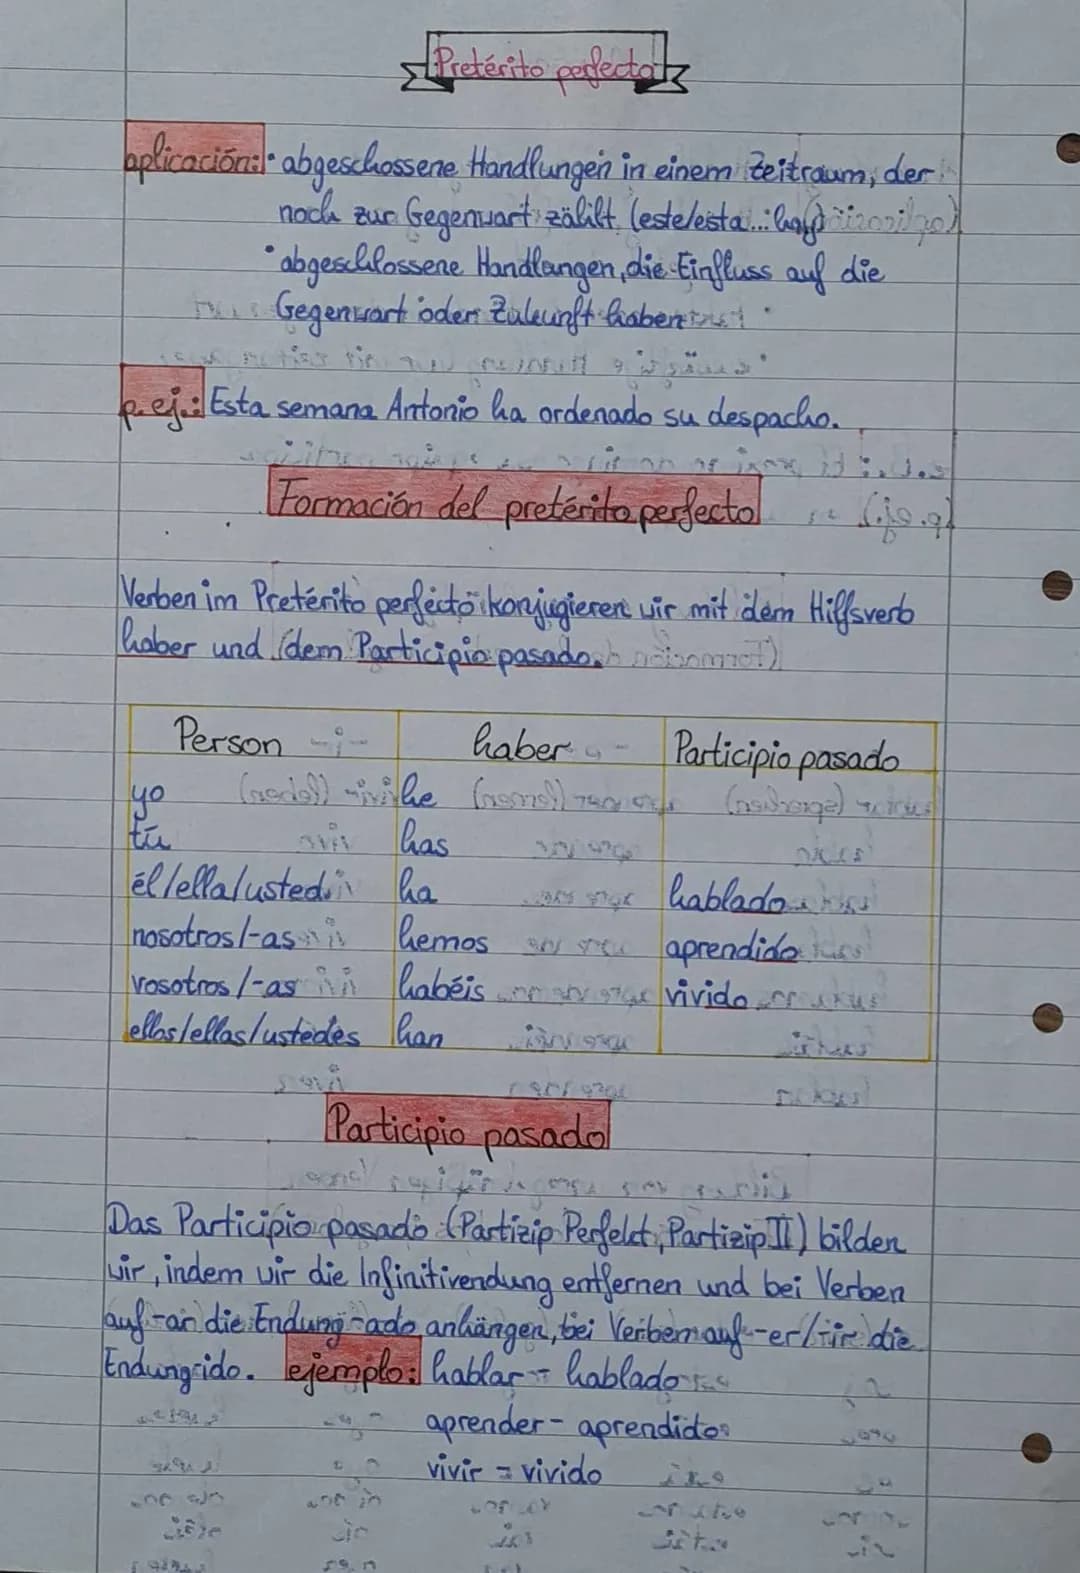 Pretérito perfecto
aplicación: • abgeschossene Handlungen in einem Zeitraum, der
noch zur Gegenwart zählt (este/esta...: hoy)
• abgeschlossene Handlungen, die Einfluss auf die
Gegenwart oder Zukunft haben
p. ej.: Esta semana Antonio ha ordenado su despacho.
Formación del pretérito perfecto
Verben im Pretérito perfecto konjugieren wir mit dem Hilfsverb
haber und dem Participio pasado.
Person haber Participio pasado
yo he
tú has
él/ella/usted ha hablado
nosotros/-as hemos aprendido
vosotros/-as habéis vivido
ellos/ellas/ustedes han
Participio pasado
Das Participio pasado (Partizip Perfekt, Partizip II) bilden
wir, indem wir die Infinitivendung entfernen und bei Verben
auf -ar die Endung -ado anhängen, bei Verben auf -er/-ir die
Endung -ido. ejemplo: hablar - hablado
aprender - aprendido
vivir - vivido